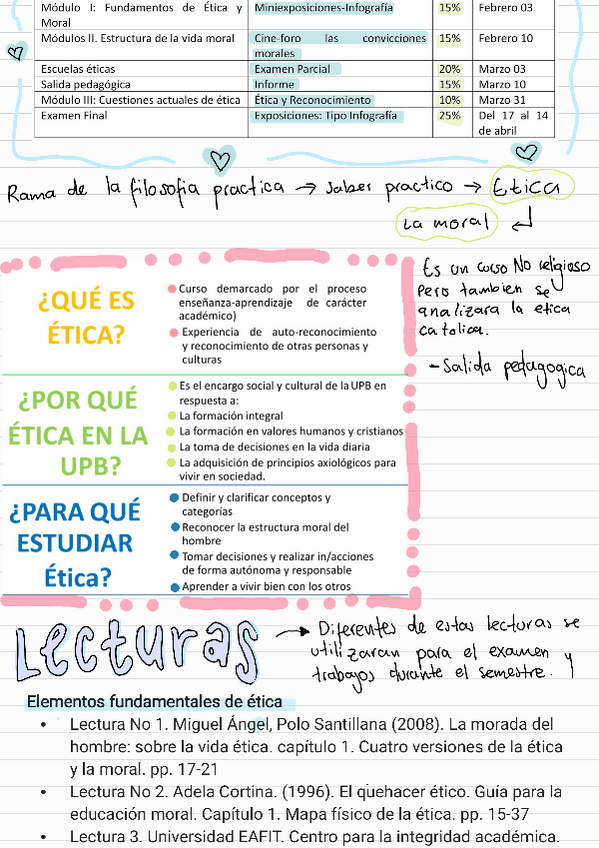 Módulo I: Fundamentos de Ética y Moral Miniexposiciones-Infografía 15% Febrero 03
Módulos II. Estructura de la vida moral Cine-foro las convicciones morales 15% Febrero 10
Escuelas éticas Examen Parcial 20% Marzo 03
Salida pedagógica Informe 15% Marzo 10
Módulo III: Cuestiones actuales de ética Ética y Reconocimiento 10% Marzo 31
Examen Final Exposiciones: Tipo Infografía 25% Del 17 al 14 de abril
Rama de la filosofia practica → saber practico → Etica
La moral
¿QUÉ ES
ÉTICA?
Curso demarcado por el proceso
enseñanza-aprendizaje de carácter
académico)
Experiencia de auto-reconocimiento
y reconocimiento de otras personas y
culturas
Es un curso NO religioso
Pero tambien se
analizara la etica
catolica.
- Salida pedagogica
¿POR QUÉ
ÉTICA EN LA
UPB?
Es el encargo social y cultural de la UPB en
respuesta a:
La formación integral
La formación en valores humanos y cristianos
La toma de decisiones en la vida diaria
La adquisición de principios axiológicos para
vivir en sociedad.
¿PARA QUÉ
ESTUDIAR
Ética?
Definir y clarificar conceptos y
categorías
Reconocer la estructura moral del
hombre
Tomar decisiones y realizar in/acciones
de forma autónoma y responsable
Aprender a vivir bien con los otros
Lecturas
→ Diferentes de estas lecturas se
utilizaran para el examen y
trabajos durante el semestre.
Elementos fundamentales de ética
• Lectura No 1. Miguel Ángel, Polo Santillana (2008). La morada del
hombre: sobre la vida ética. capítulo 1. Cuatro versiones de la ética
y la moral. pp. 17-21
• Lectura No 2. Adela Cortina. (1996). El quehacer ético. Guía para la
educación moral. Capítulo 1. Mapa físico de la ética. pp. 15-37
• Lectura 3. Universidad EAFIT. Centro para la integridad académica.